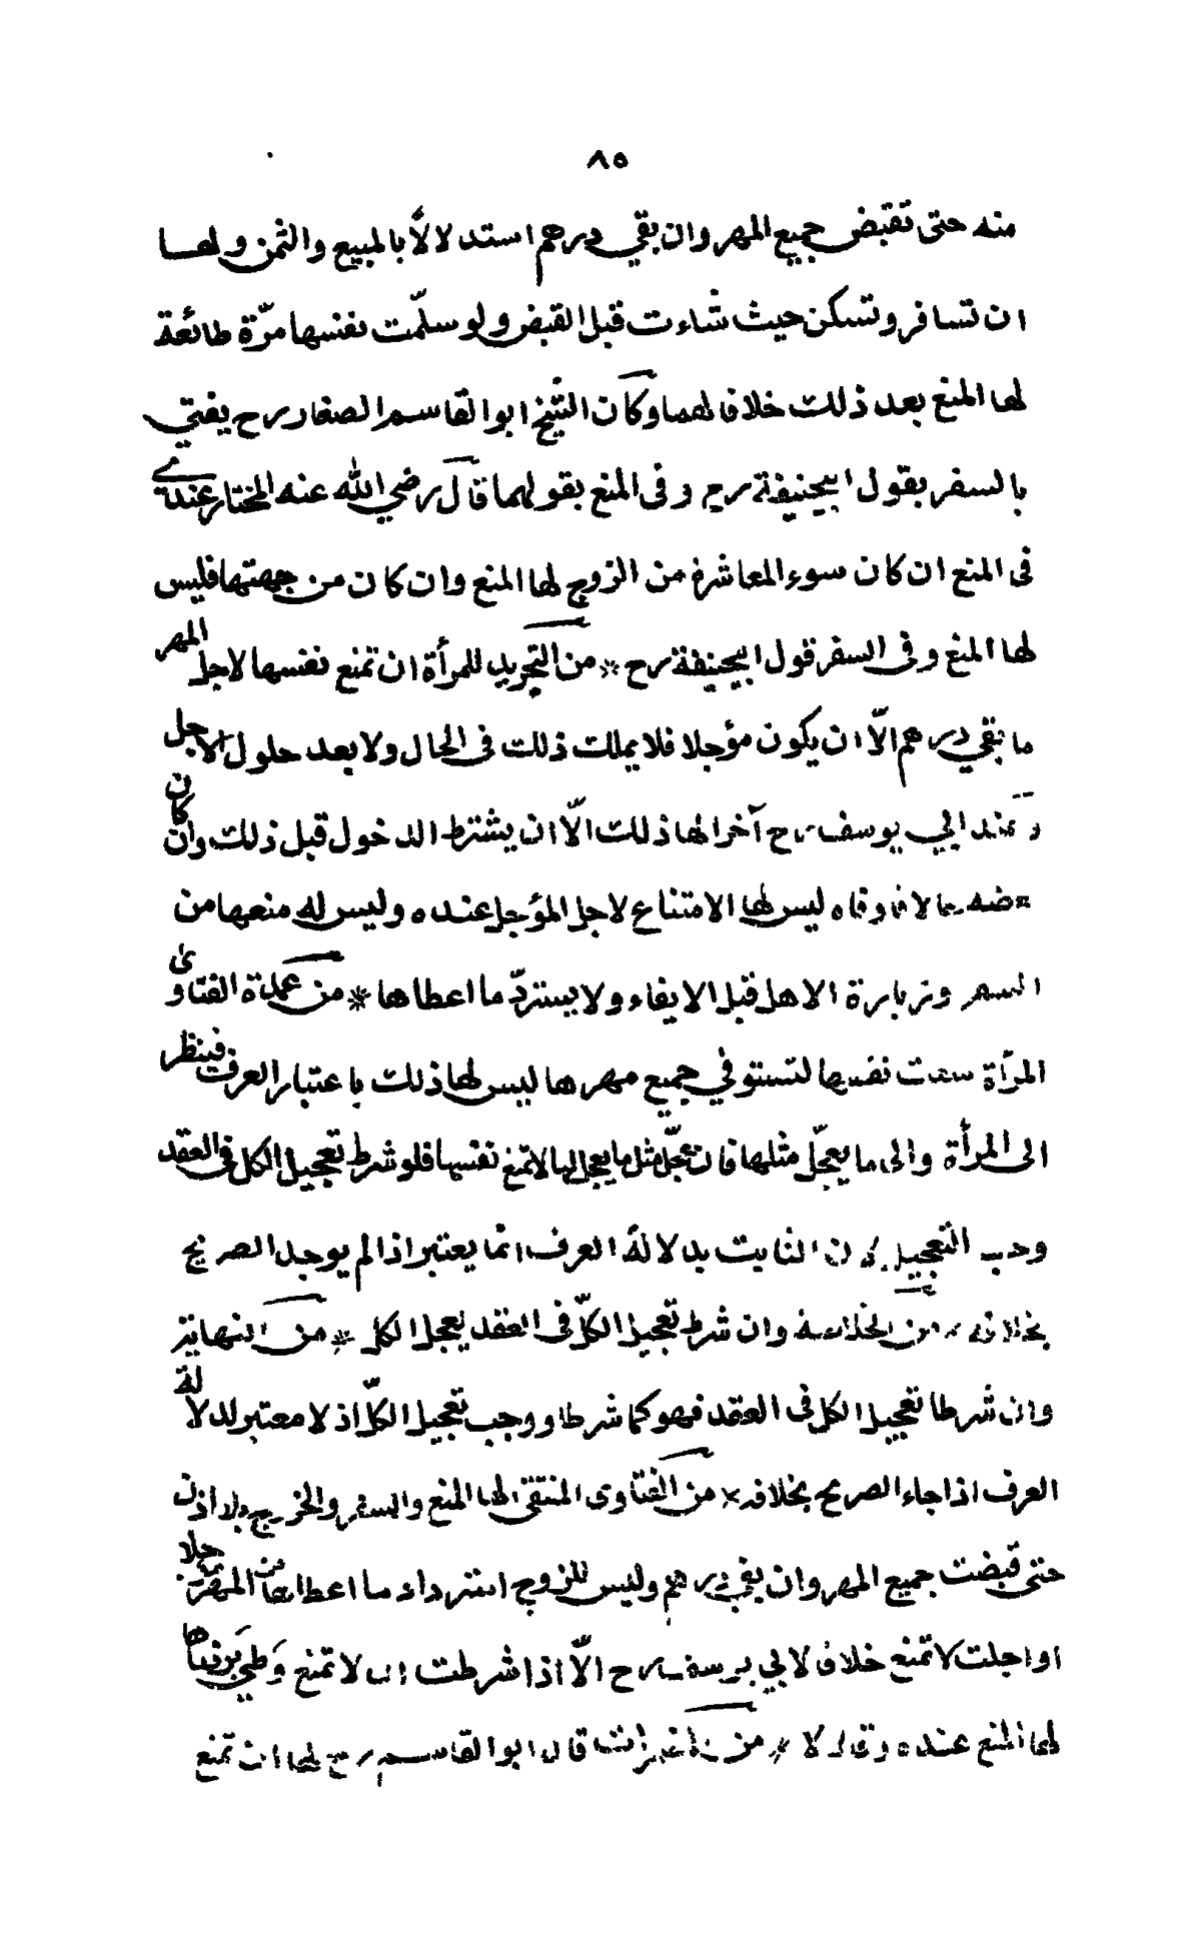 ٨٥
منه حتى تقبض جميع المهر وان بقي درهم استدلالاً بالمبيع والثمن ولها
ان تسافر وتسكن حيث شاءت قبل القبض ولو سلّمت نفسها مرّة طائعة
لها المنع بعد ذلك خلافا لهما وكان الشيخ ابو القاسم الصفار رح يفتي
بالسفر بقول ابيحنيفة رح وفى المنع بقولهما قال رضي الله عنه المختار عندي
فى المنع ان كان سوء المعاشرة من الزوج لها المنع وان كان من جهتها فليس
لها المنع وفى السفر قول ابيحنيفة رح * من التجريد للمرأة ان تمنع نفسها لاجل المهر
ما بقي درهم الّا ان يكون مؤجلا فلا يملك ذلك فى الحال ولا بعد حلول الاجل
وعند ابي يوسف رح آخرا لها ذلك الّا ان يشترط الدخول قبل ذلك وان كان
ليس لها الامتناع لاجل المؤجل عنده وليس له منعها من
السفر وزيارة الاهل قبل الايفاء ولا يستردّ ما اعطاها * من عمدة الفتاوى
المرأة نفسها لتستوفي جميع مهرها ليس لها ذلك باعتبار العرف فينظر
الى المرأة والى ما يعجّل مثلها فان عجّل مثل ما يعجل لها لا تمنع نفسها فلو شرط تعجيل الكل فى العقد
وجب التعجيل لان الثابت بدلالة العرف انما يعتبر اذا لم يوجد الصريح
بخلافه * من الخلاصة وان شرط تعجيل الكلّ فى العقد يعجل الكل * من النهاية
وان شرطا تعجيل الكل فى العقد فهو كما شرطا ووجب تعجيل الكلّ اذ لا معتبر لدلالة
العرف اذا جاء الصريح بخلافه * من الفتاوى المنتقى لها المنع والسفر والخروج بلا اذن
حتى قبضت جميع المهر وان بقي درهم وليس للزوج استرداد ما اعطاها من المهر
او اجلت لا تمنع خلافا لابي يوسف رح الّا اذا شرطت ان لا تمنع وَطي برضاها
لها المنع عنده وقالا لا * من قال ابو القاسم رح لها ان تمنع